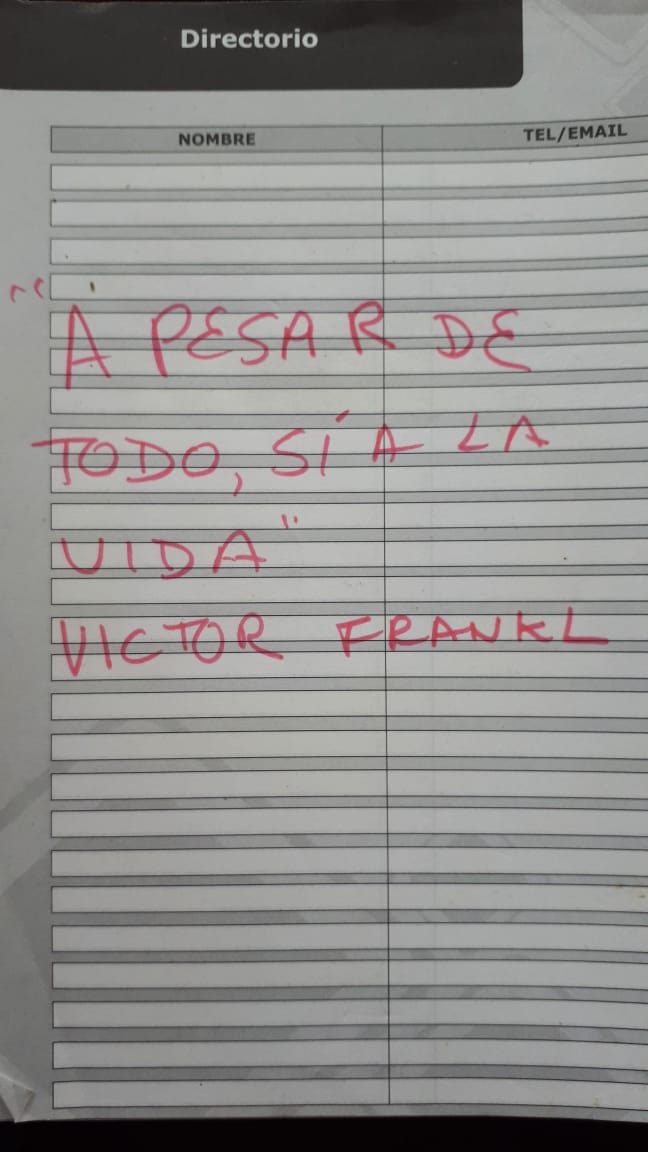 Directorio
NOMBRE TEL/EMAIL
"A PESAR DE
TODO, SÍ A LA
VIDA"
VICTOR FRANKL